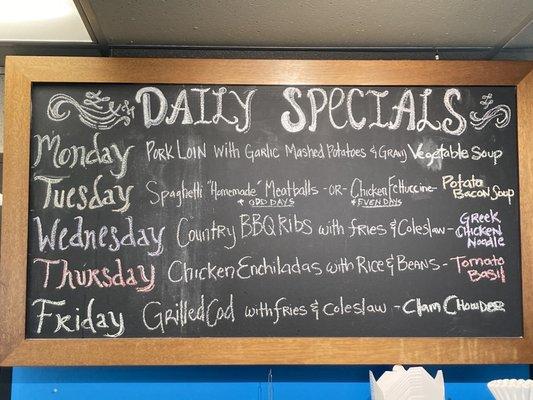 DAILY SPECIALS
Monday PORK LOIN with Garlic Mashed Potatoes & Gravy Vegetable Soup
Tuesday Spaghetti "Homemade" Meatballs -OR- Chicken Fettuccine - Potato Bacon Soup
ODD DAYS EVEN DAYS
Wednesday Country BBQ Ribs with fries & Coleslaw - Greek Chicken Noodle
Thursday Chicken Enchiladas with Rice & Beans - Tomato Basil
Friday Grilled Cod with fries & coleslaw - Clam Chowder